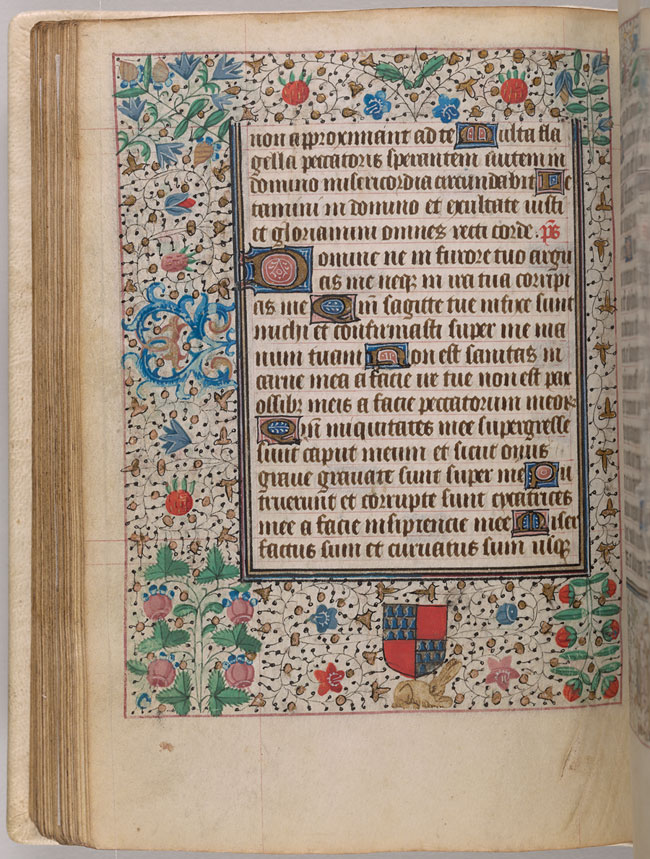 non approximant ad te Multa fla
gella peccatoris sperantem autem in
domino misericordia circundabit Le
tamini in domino et exultate iusti
et gloriamini omnes recti corde. p̄s
Domine ne in furore tuo argu
as me neqꝫ in ira tua corripi
as me Qm̄ sagitte tue infixe sunt
michi et confirmasti super me ma
num tuam Non est sanitas in
carne mea a facie ire tue non est pax
ossibꝫ meis a facie peccatorum meoꝝ
Qm̄ iniquitates mee supergresse
sunt caput meum et sicut onus
graue grauate sunt super me Pu
truerunt et corrupte sunt cicatrices
mee a facie insipiencie mee Miser
factus sum et curuatus sum usqꝫ